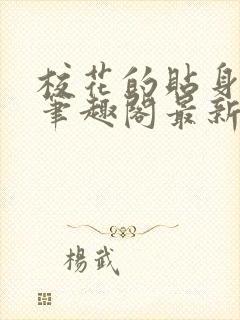 校花的贴身
笔趣阁最新
杨武